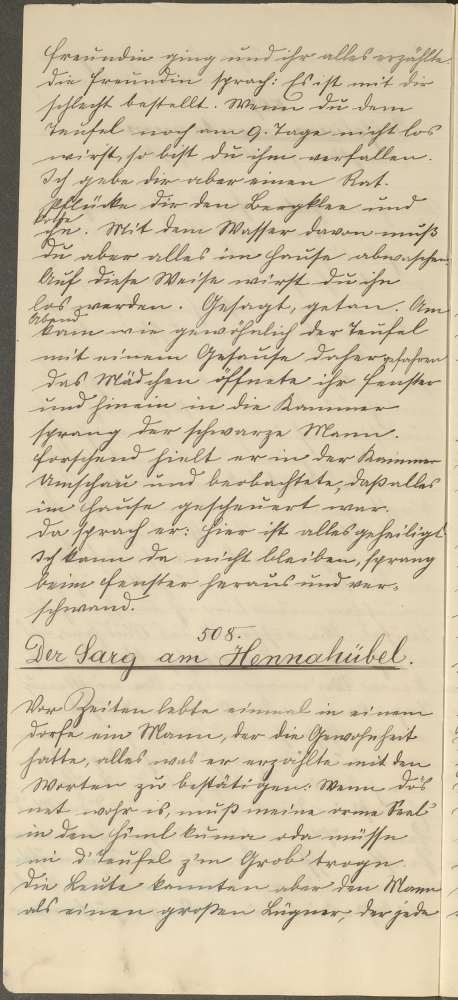 Freundin ging und ihr alles erzählte
die Freundin sprach: Es ist mit dir
schlecht bestellt. Wenn du dem
Teufel noch am 9. Tage nicht los
wirst, so bist du ihm verfallen.
Ich gebe dir aber einen Rat.
Pflücke dir den Bergklee und
koche
ihn. Mit dem Wasser davon muß
du aber alles im Hause abwaschen
Auf diese Weise wirst du ihn
los werden. Gesagt, getan. Am
Abend
kam wie gewöhnlich der Teufel
mit einem Gesause daher gefahren
das Mädchen öffnete ihr Fenster
und hinein in die Kammer
sprang der schwarze Mann.
Forschend hielt er in der Kammer
Umschau und beobachtete, daß alles
im Hause gescheuert war.
Da sprach er: Hier ist alles geheiligt
Ich kann da nicht bleiben, sprang
beim Fenster heraus und ver-
schwand.
508.
Der Sarg am Hennahübel.
Vor Zeiten lebte einmal in einem
Dorfe ein Mann, der die Gewohnheit
hatte, alles was er erzählte mit den
Worten zu bestätigen: Wenn dos
net wohr is, muß meine orme Seel'
in den Himl kuma oda müssn
mi d' Teufel z'm Grob trogn
Die Leute kannten aber den Mann
als einen großen Lügner, der jede